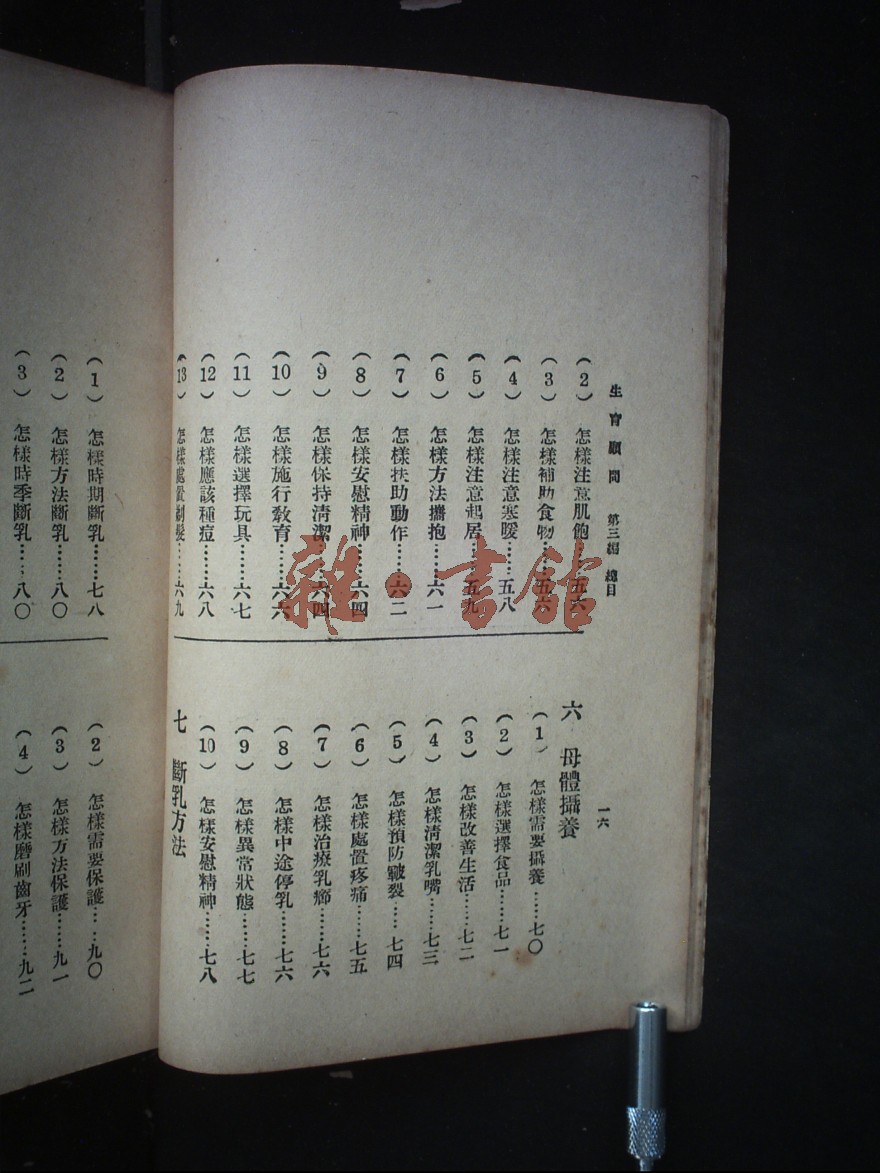 生育顧問　第三編　總目
一六
(2) 怎樣注意肌飽……五六
(3) 怎樣補助食物……五六
(4) 怎樣注意寒暖……五八
(5) 怎樣注意起居……五九
(6) 怎樣方法攜抱……六一
(7) 怎樣扶助動作……六二
(8) 怎樣安慰精神……六四
(9) 怎樣保持清潔……六四
(10) 怎樣施行敎育……六六
(11) 怎樣選擇玩具……六七
(12) 怎樣應該種痘……六八
(13) 怎樣處置剃髮……六九
六　母體攝養
(1) 怎樣需要攝養……七〇
(2) 怎樣選擇食品……七一
(3) 怎樣改善生活……七二
(4) 怎樣淸潔乳嘴……七三
(5) 怎樣預防皸裂……七四
(6) 怎樣處置疼痛……七五
(7) 怎樣治療乳癤……七六
(8) 怎樣中途停乳……七六
(9) 怎樣異常狀態……七七
(10) 怎樣安慰精神……七八
七　斷乳方法
(1) 怎樣時期斷乳……七八
(2) 怎樣方法斷乳……八〇
(3) 怎樣時季斷乳……八〇
(2) 怎樣需要保護……九〇
(3) 怎樣方法保護……九一
(4) 怎樣磨刷齒牙……九二
雜·書館